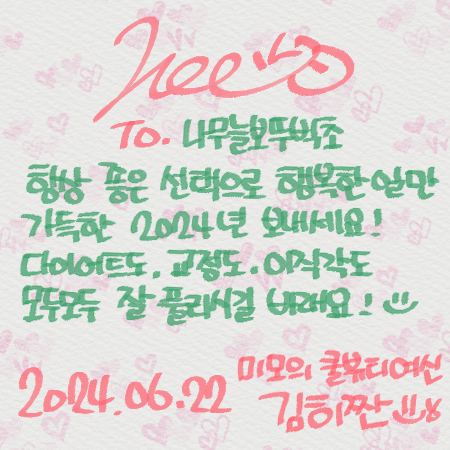 Hee
To. 나무늘보뚜벅초
항상 좋은 선택으로 행복한 일만
가득한 2024년 보내세요!
다이어트도, 교정도, 이직각도
모두모두 잘 풀리시길 바래요!
2024.06.22
미모의 쿨뷰티여신
김히짠